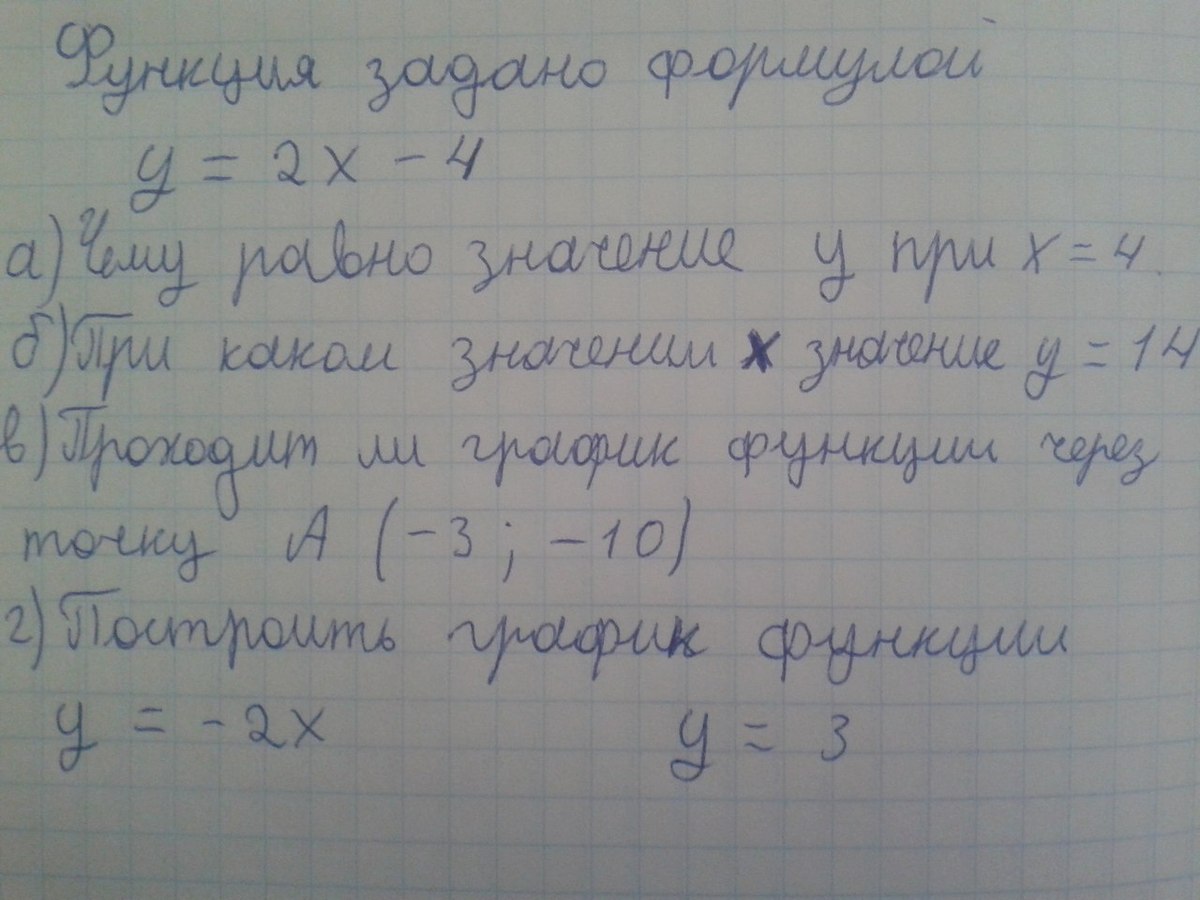 Функция задано формулой
y = 2x - 4
а) Чему равно значение y при x = 4.
б) При каком значении x значение y = 14
в) Проходит ли график функции через
точку A (-3 ; -10)
г) Построить график функции
y = -2x y = 3